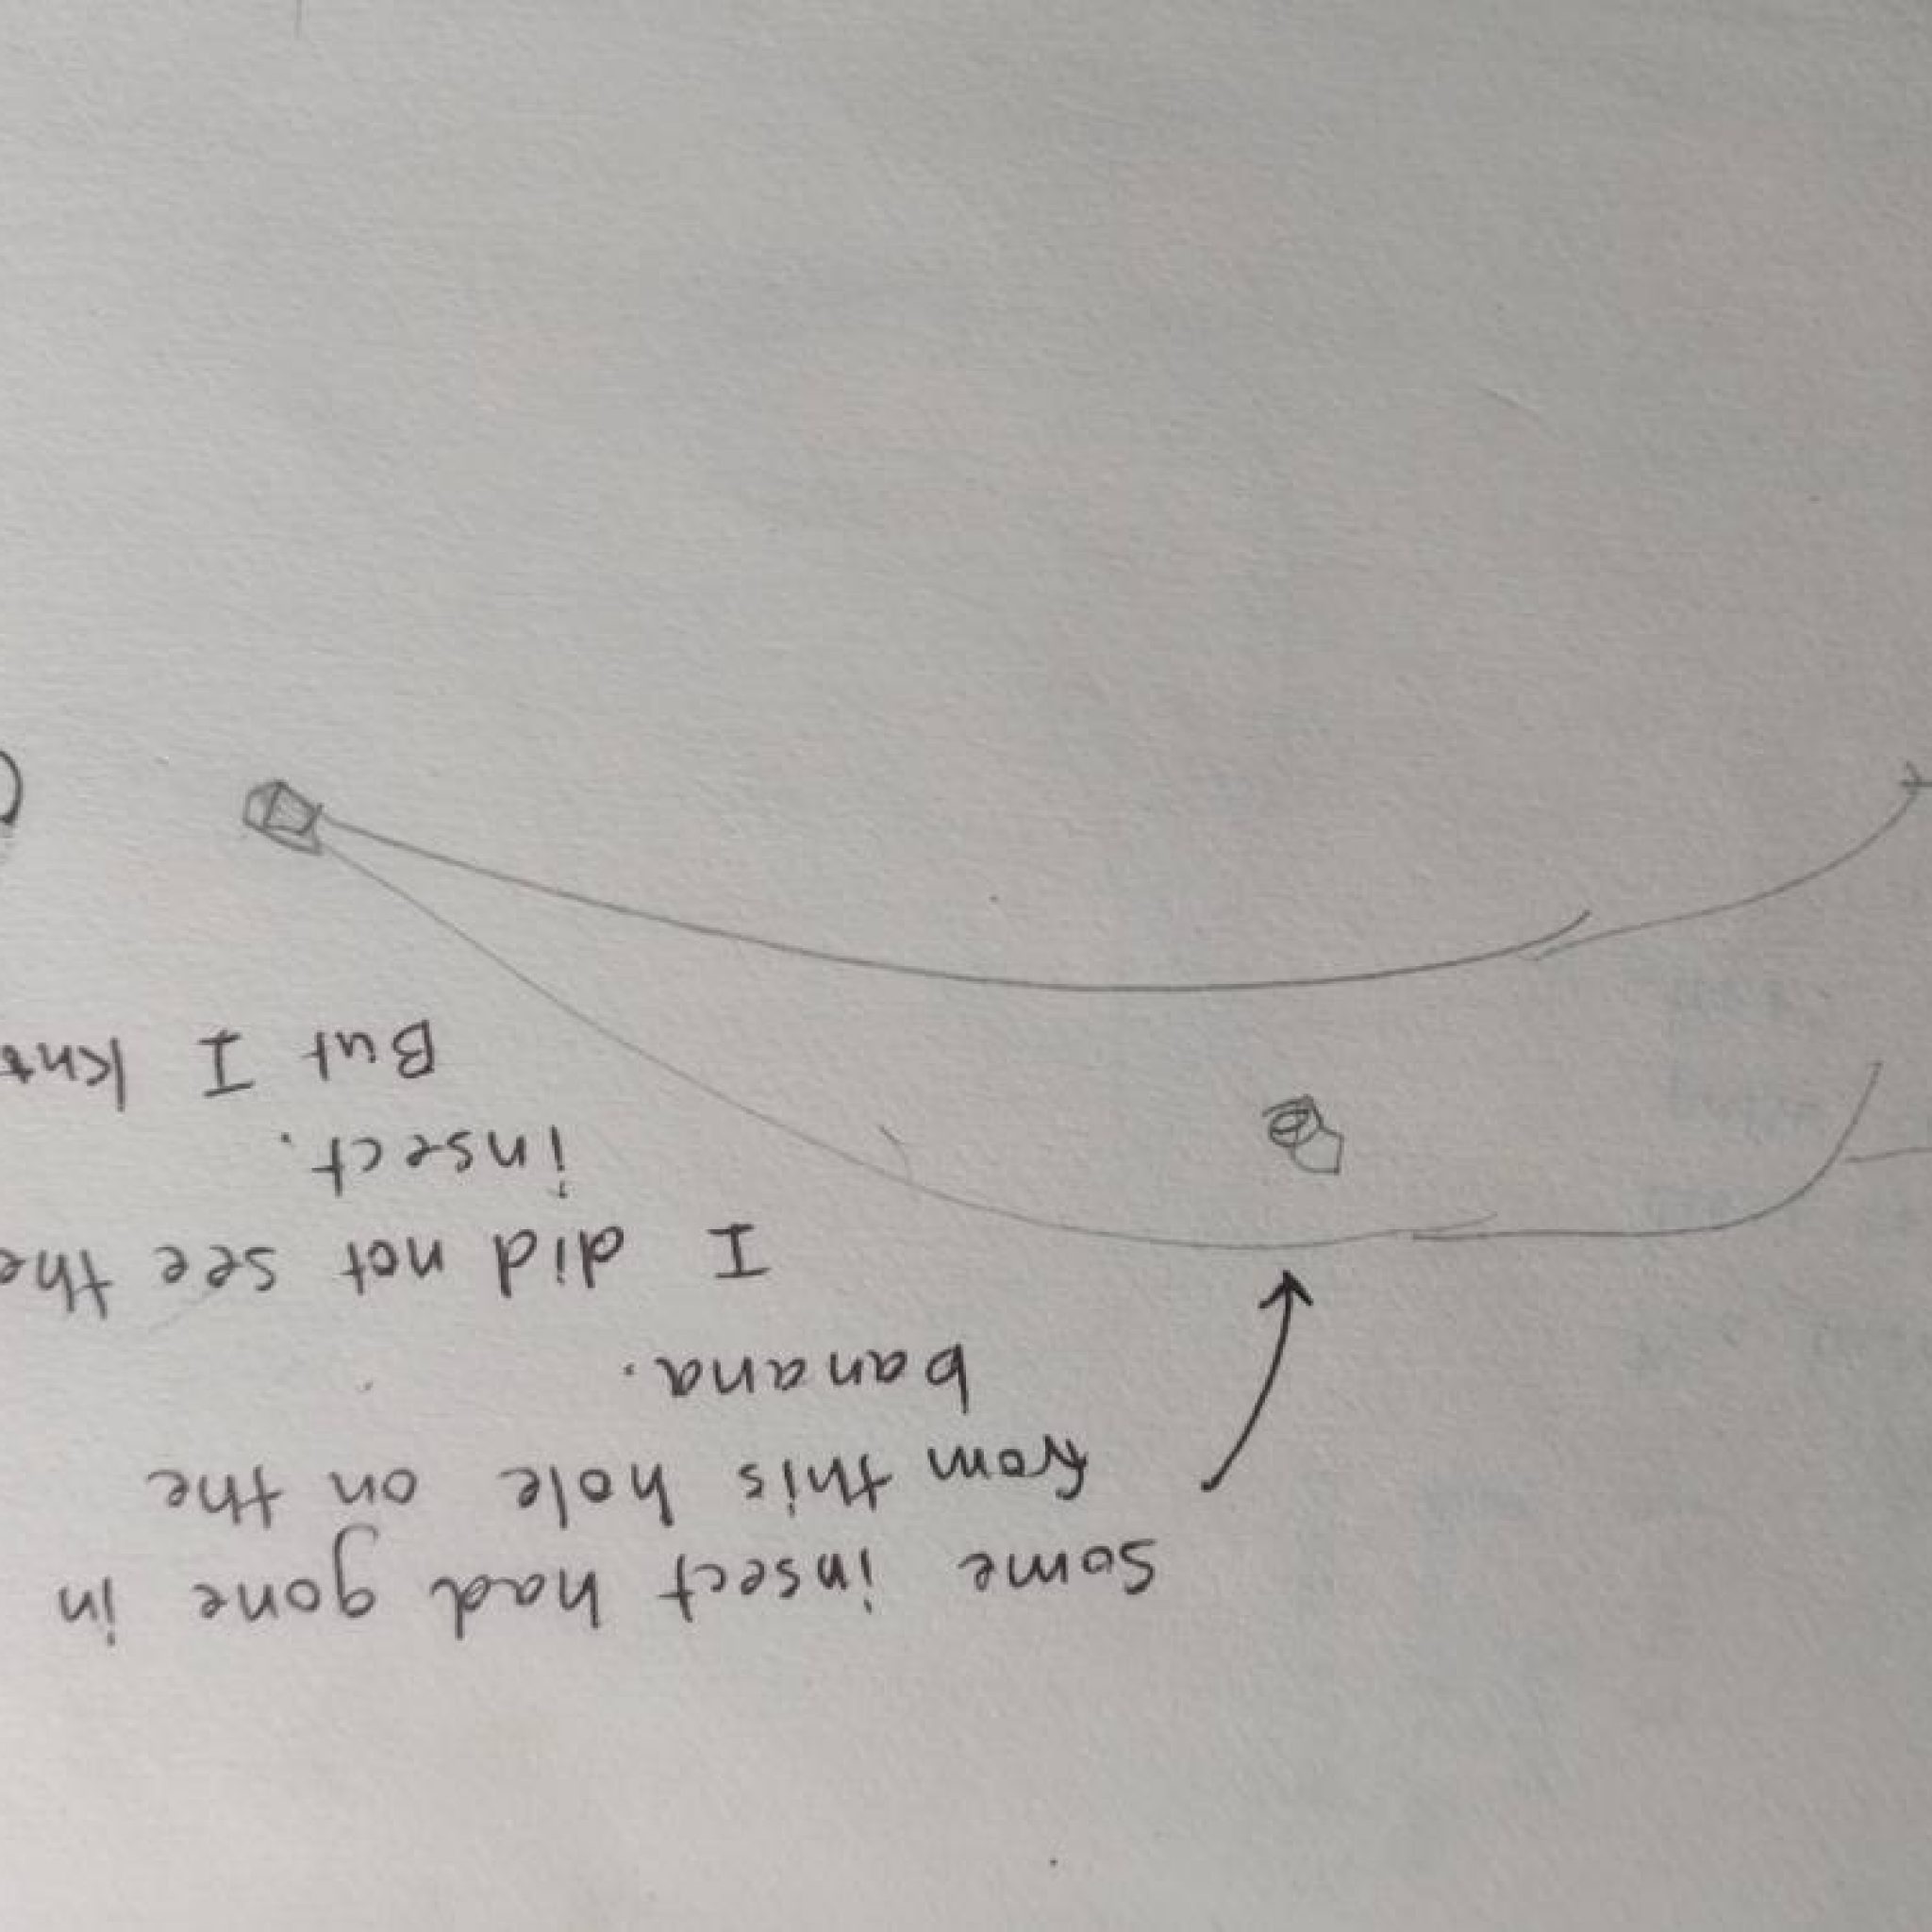 Some insect had gone in
from this hole on the
banana.
I did not see the
insect.
But I